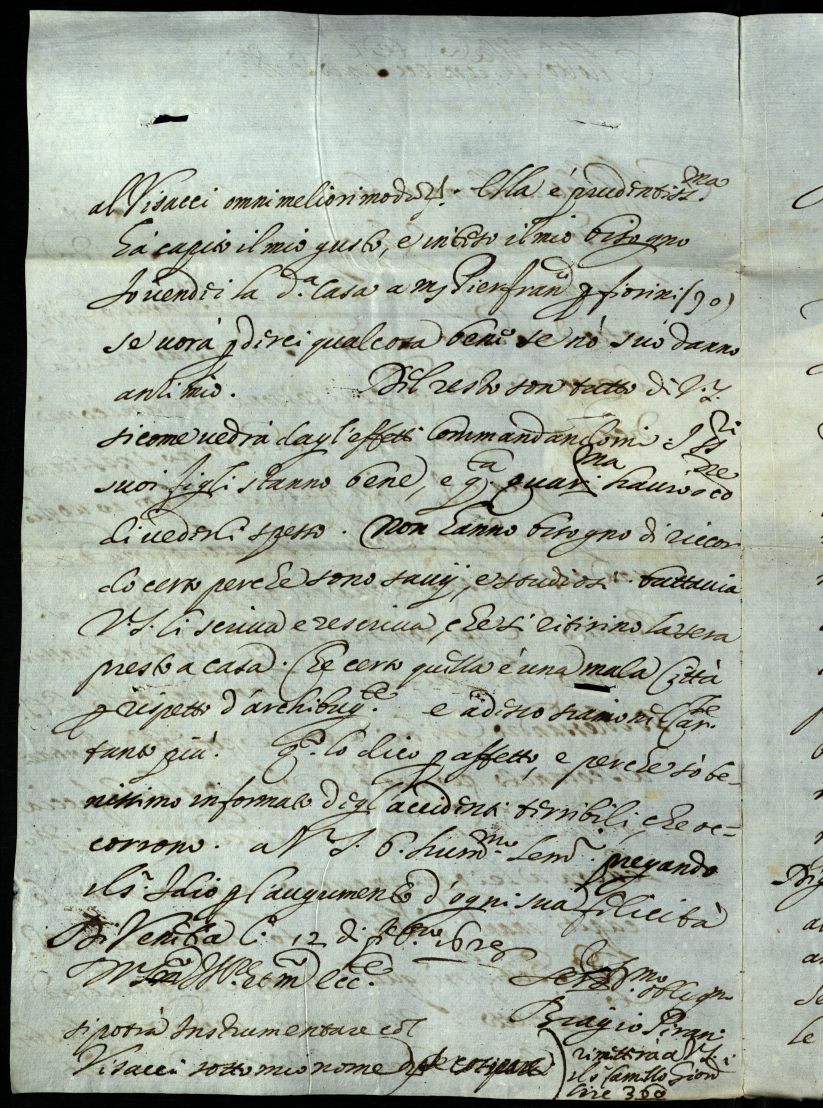 al Visacci omnimeliorimodo. Ella é prudentiss.ma
hà capito il mio gusto, e inteso il mio bisogno
Io vendei la d.a casa a mj Pierfran.o fiorini (90)
se vorà perderci qualcosa bene se nò suo danno
anzi mio. Del resto son tutto di V.S.
si come vedrà dagl'effetti Commandandomi. I ss.ri
suoi figli stanno bene, e q.a quar.ma hauerò
di vederli spesso. Non hanno bisogno di ricor
do certo perche sono savij, e studiosi. tuttavia
V.S. li scriva e rescriva, che si ritirino la sera
presto a casa. Che certo quella é una mala Città
p rispetto d'archibug.te e adesso siamo nel Car.le
tanto più. Q.o lo dico p affetto, e perche sò be-
nissimo informato degl'accidenti terribili, che oc=
corrono. a V.S. b. hum.mo le m. pregando
il s. Idio p l'augumento d'ogni sua felicità
Di Venetia li 12 di feb.ro 1628
Ser.re Aff.mo obligat.
Biagio Piran
si potrà Instrumentare col
Visacci sotto mio nome
rimetterà a V.S. i
il s. Camillo Giord
lire 360